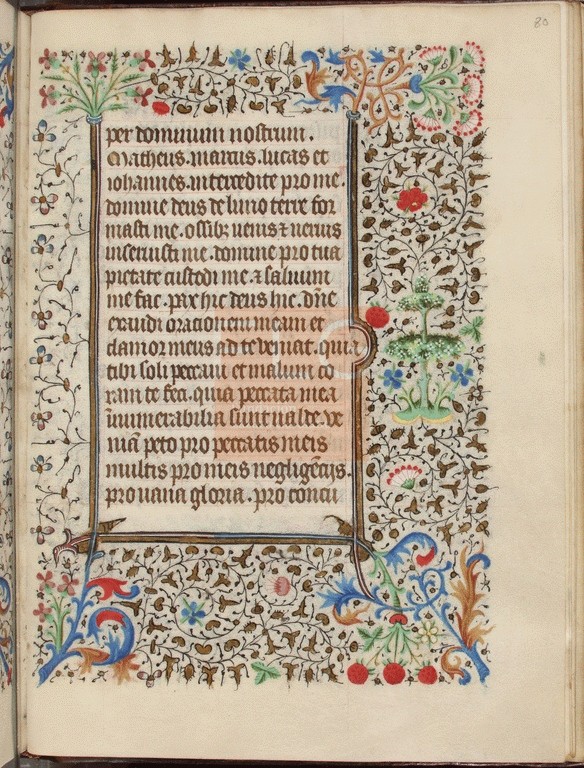 80
per dominum nostrum.
Matheus. marcus. lucas et
iohannes. intercedite pro me.
domine deus de limo terre for
masti me. ossibz uenis & neruis
inseruisti me. domine pro tua
pietate custodi me. & saluum
me fac. pax hic deus hic. dñe
exaudi orationem meam et
clamor meus ad te veniat. quia
tibi soli peccaui et malum co
ram te feci. quia peccata mea
īnumerabilia sunt ualde. ve
niā peto pro peccatis meis
multis pro meis negligēcijs.
pro uana gloria. pro concu